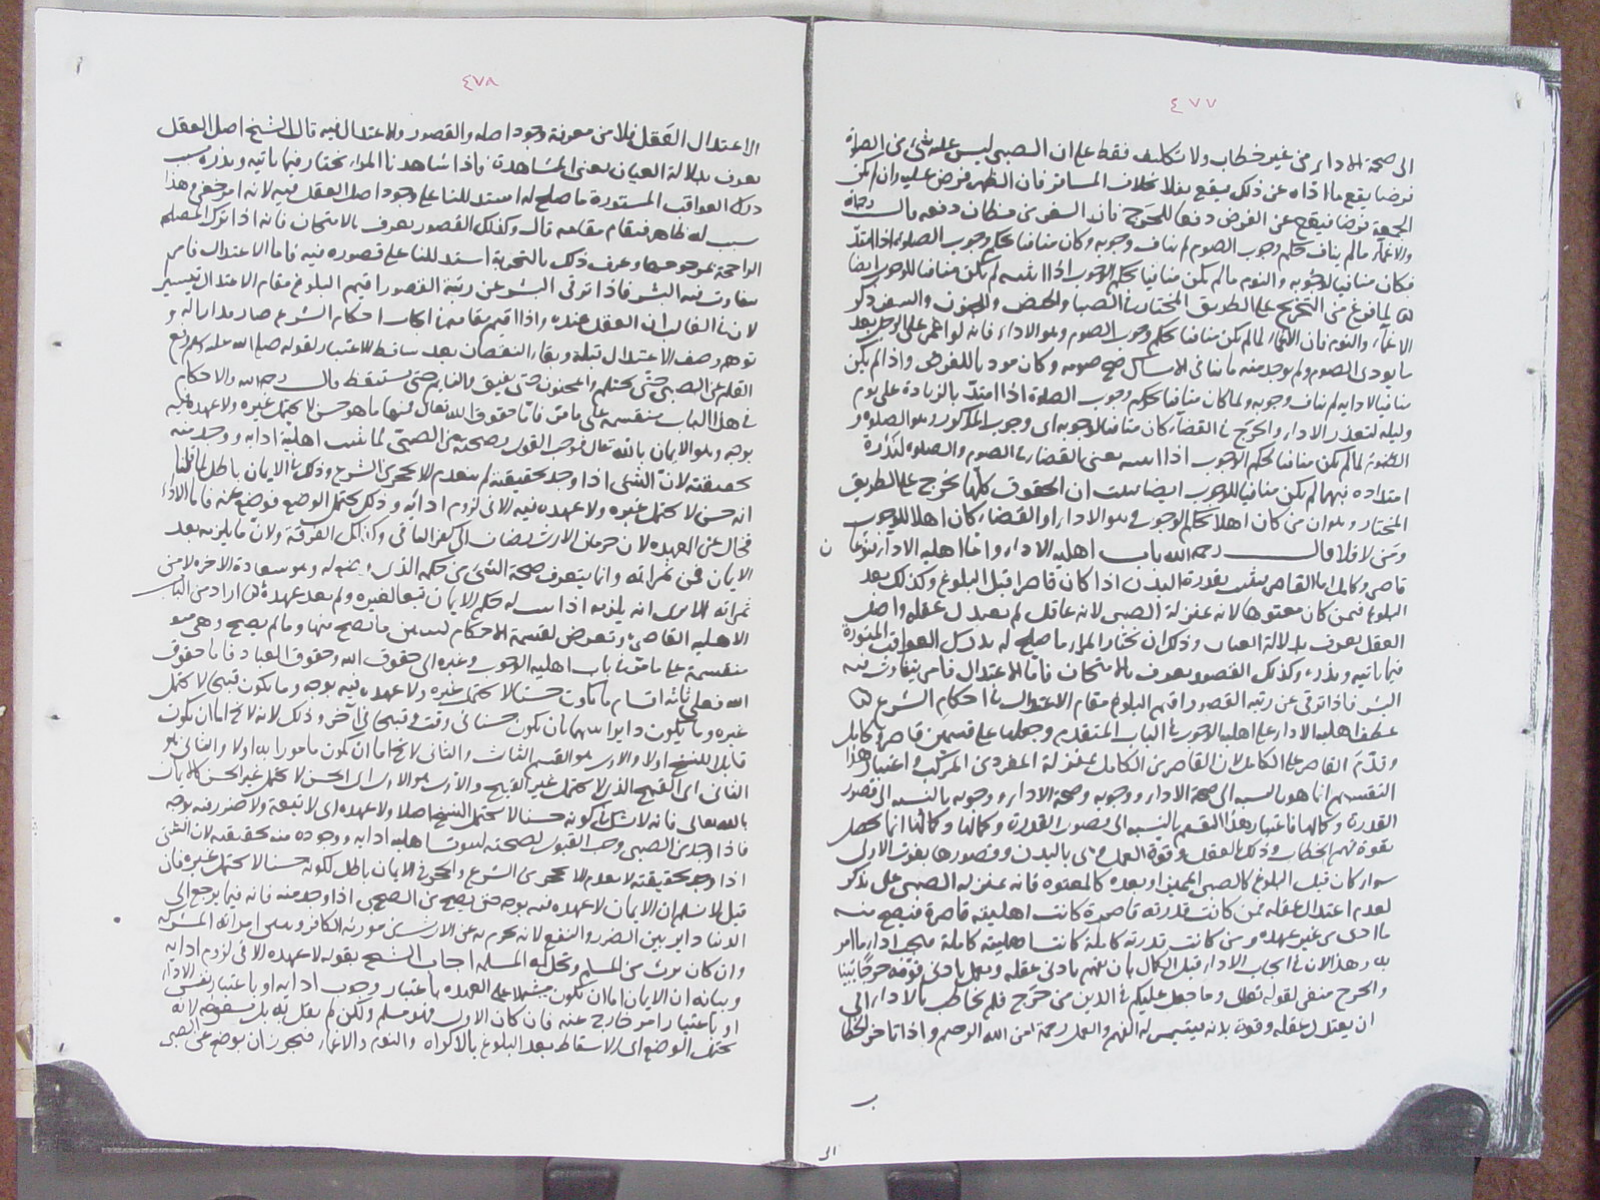 ٤٧٧
الى صحة الاداء من غير خطاب ولا تكليف فقط على ان الصبي ليس عليه شئ من الصلوة
فرضا يقع ما اداه عن ذلك يقع نفلا بخلاف المسافر فان الظهر فرض عليه وان لم يكن
الجمعة فرضا فيقع عن الفرض دفعا للحرج فان السفر من مظان دفعه قال رحمه
والاغماء مالم يناف حكم وجوب الصوم لم يناف وجوبه وكان منافيا لحكم وجوب الصلوة اذا امتد
فكان منافيا لوجوبه والنوم مالم يكن منافيا لحكم الوجوب اذا لم يكن منافيا للوجوب ايضا
لما فرغ من التخريج على الطريق المختار في الصبا والحيض والجنون والسفر ذكر
الاغماء والنوم فان الاغماء لما لم يكن منافيا لحكم وجوب الصوم وهو الاداء فانه لو اغمي على الرجل بعد
ما نوى الصوم ولم يوجد منه ما ينافي الامساك صح صومه وكان مؤديا للفرض واذا لم يكن
منافيا لادائه لم يناف وجوبه ولما كان منافيا لحكم وجوب الصلوة اذا امتد بالزيادة على يوم
وليلة لتعذر الاداء والحرج في القضاء كان منافيا لوجوبه اى وجوب المذكور وهو الصلوة و
النوم لما لم يكن منافيا لحكم الوجوب اذا يعنى القضاء في الصوم والصلوة لندرة
امتداده فيهما لم يكن منافيا للوجوب ايضا ان الحقوق كلها تخرج على الطريق
المختار وهو ان من كان اهلا لحكم الوجوب وهو الاداء او القضاء كان اهلا للوجوب
ومن لا فلا قال رحمه الله باب اهلية الاداء واما اهلية الاداء نوعان
قاصر وكامل اما القاصر يثبت بقدرة البدن اذا كان قاصرا قبل البلوغ وكذلك بعد
البلوغ فيمن كان معتوها لانه بمنزلة الصبي لانه عاقل لم يعتدل عقله واصل
العقل يعرف بدلالة العيان وذلك ان يختار المرء ما صلح له بدرك العواقب المستورة
فيما ياتيه ويذره وكذلك القصور يعرف بالامتحان فاما الاعتدال فامر يتفاوت فيه
البشر فاذا ترقى عن رتبة القصور اقيم البلوغ مقام الاعتدال في احكام الشرع لما
عطف اهلية الاداء على اهلية الوجوب في الباب المتقدم وجعلها على قسمين قاصر وكامل
وقدم القاصر على الكامل لان القاصر من الكامل بمنزلة المفرد من المركب واعتبار هذا
التقسيم انما هو بالنسبة الى صحة الاداء ووجوبه وصحة الاداء ووجوبه بالنسبة الى قصور
القدرة وكمالها فاعتبار هذا التقسيم بالنسبة الى قصور القدرة وكمالها وكمالها انما يحصل
بقوة فهم الخطاب وذلك بالعقل وقوة العمل وهى بالبدن وقصورها بفوت الاولى
سواء كان قبل البلوغ كالصبي المميز او بعده كالمعتوه فانه بمنزلة الصبي على ما ذكر
لعدم اعتدال عقله فمن كانت قدرته قاصرة كانت اهليته قاصرة فيصح منه
ما ادى من غير عهدة ومن كانت قدرته كاملة كانت اهليته كاملة فيجب اداء ما امر
به وهذا لان في ايجاب الاداء قبل الكمال بان يفهم بادنى عقله ويعمل بادنى قوته حرجا بينا
والحرج منفى لقوله تعالى وما جعل عليكم في الدين من حرج فلم يخاطب بالاداء الى
ان يعتدل عقله وقوة بدنه فيتيسر له الفهم والعمل رحمة من الله الرحيم واذا تاخر الخطاب
الى
٤٧٨
الاعتدال العقل فلا من معرفة وجود اصله والقصور والاعتدال فيه قال الشيخ اصل العقل
يعرف بدلالة العيان يعنى المشاهدة فاذا شاهدنا المرء يختار فيما ياتيه ويذره بسبب
درك العواقب المستورة ما صلح له استدللنا على وجود اصل العقل فيه لانه امر خفى وهذا
سبب له ظاهر فيقام مقامه قال وكذلك القصور يعرف بالامتحان فانه اذا ترك المصلحة
الراجحة بمرجوحها وعرف ذلك بالتجربة استدللنا على قصوره فيه فاما الاعتدال فامر
يتفاوت فيه البشر فاذا ترقى البشر عن رتبة القصور اقيم البلوغ مقام الاعتدال تيسيرا
لان في الغالب ان العقل عنده واذا اقيم مقامه في ايجاب احكام الشرع صار مدار له و
توهم وصف الاعتدال قبله وبقاء النقصان بعد ساقط الاعتبار لقوله صلى الله عليه وسلم رفع
القلم عن الصبي حتى يحتلم والمجنون حتى يفيق والنائم حتى يستيقظ قال رحمه الله والاحكام
في هذا الباب منقسمة على ما مر فاما حقوق الله تعالى فمنها ما هو حسن لا يحتمل غيره ولا عهدة فيه
بوجه وهو الايمان بالله تعالى فوجب القول بصحته من الصبي لما ثبت اهلية ادائه ووجد منه
بحقيقته لان الشئ اذا وجد بحقيقته لم ينعدم الا بحجر من الشرع وذلك في الايمان باطل لما قلنا
انه حسن لا يحتمل غيره ولا عهدة فيه الا في لزوم ادائه وذلك يحتمل الوضع فوضع عنه فاما الاداء
فخال عن العهدة لان حرمان الارث يضاف الى كفر الباقي وكذلك الفرقة ولان ما يلزمه بعد
الايمان فمن ثمراته وانما يتعرف صحة الشئ من حكمه الذى وضع له وهو سعادة الاخرة لا من
ثمراته الا ترى انه يلزمه اذا ثبت له حكم الايمان تبعا لغيره ولم يعد عهدة لما اراد من الباب
الاهلية القاصرة وتعرض لقسمة الاحكام ليبين ما يصح منها وما لم يصح وهى
منقسمة على ما مر في باب اهلية الوجوب وغيره الى حقوق الله وحقوق العباد فاما حقوق
الله فعلى ثلثة اقسام ما يكون حسنا لا يحتمل غيره ولا عهدة فيه بوجه وما يكون قبيحا لا يحتمل
غيره وما يكون دائرا بينهما بان يكون حسنا في وقت وقبيحا في آخر وذلك لانه لا يخ اما ان يكون
قابلا للنسخ اولا والاول هو القسم الثالث والثاني لا يخ اما ان يكون مامورا به اولا والثاني هو
الثاني اى القبيح الذى لا يحتمل غير القبيح والاول هو الاول اى الحسن لا يحتمل غير الحسن كالايمان
بالله تعالى فانه لا شك في كونه حسنا لا يحتمل النسخ اصلا ولا عهدة اى لا تبعة ولا ضرر فيه بوجه
فاذا وجد من الصبي وجب القبول لصحته لثبوت اهلية ادائه ووجوده منه بحقيقته لان الشئ
اذا وجد بحقيقته لا ينعدم الا بحجر من الشرع والحجر في الايمان باطل لكونه حسنا لا يحتمل غيره فان
قيل لا نسلم ان الايمان لا عهدة فيه بوجه حتى يصح من الصبي اذا وجد منه فانه فيما يرجع الى
الدنيا دائر بين الضرر والنفع لانه يحرم به عن الارث من مورثه الكافر وتبين امراته المشركة
وان كان يرث من المسلم وتحل له المسلمة اجاب الشيخ بقوله لا عهدة الا في لزوم ادائه
وبيانه ان الايمان اما ان يكون مشتملا على العهدة باعتبار وجوب ادائه او باعتبار نفس الاداء
او باعتبار امر خارج عنه فان كان الاول فهو مسلم ولكن لم نقل به بل لانه
يحتمل الوضع اى الاسقاط بعد البلوغ بالاكراه والنوم والاغماء فيجوز ان يوضع عن الصبي